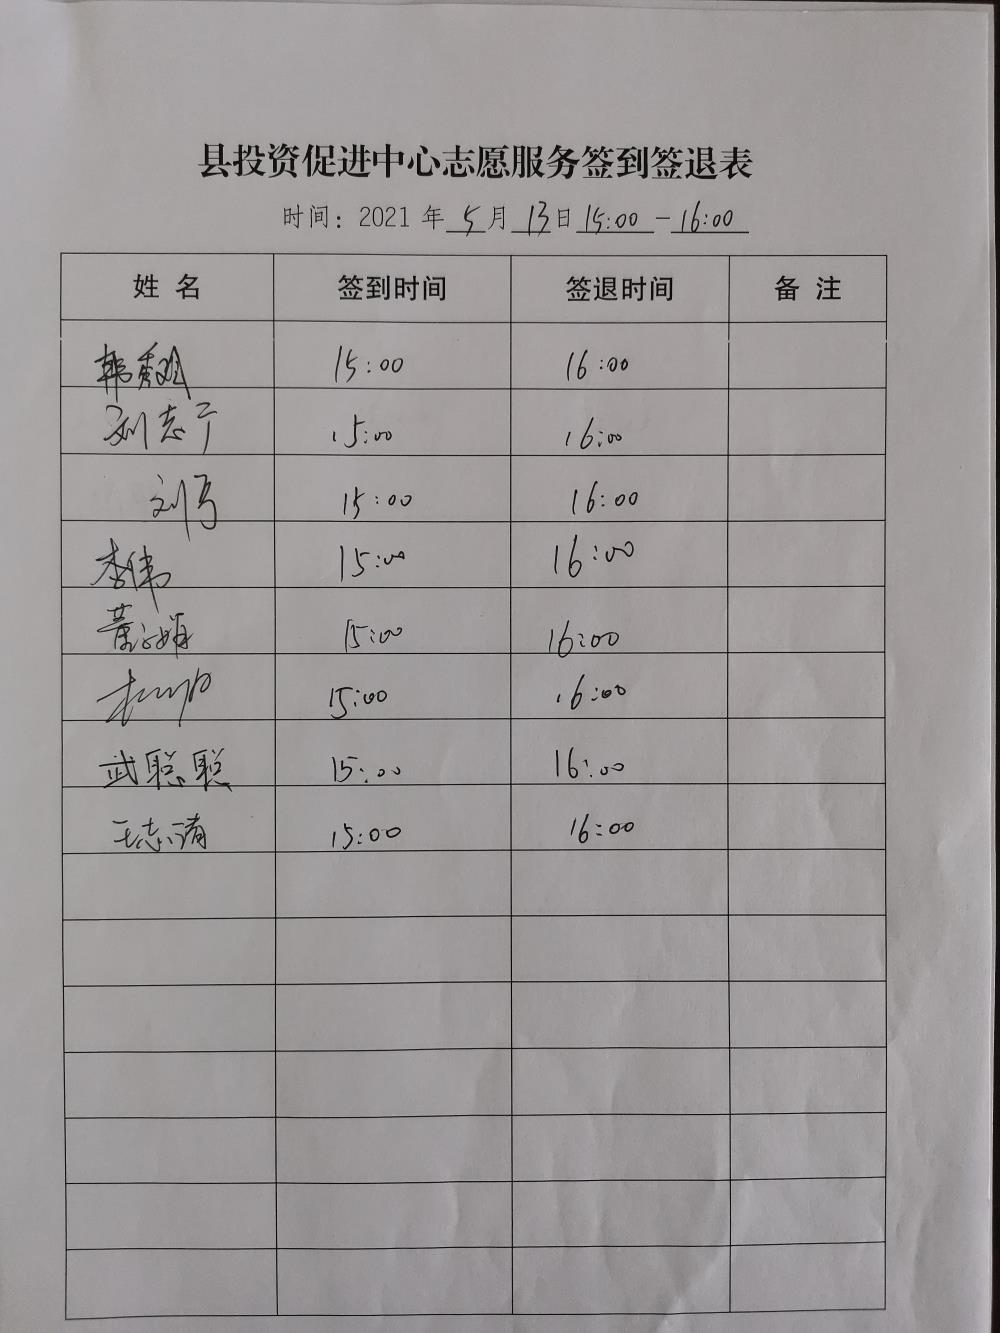 县投资促进中心志愿服务签到签退表
时间：2021年5月13日15:00-16:00
姓名 签到时间 签退时间 备注
韩 15:00 16:00
刘志宁 15:00 16:00
刘 15:00 16:00
李伟 15:00 16:00
董 娟 15:00 16:00
15:00 16:00
武聪聪 15:00 16:00
王志清 15:00 16:00